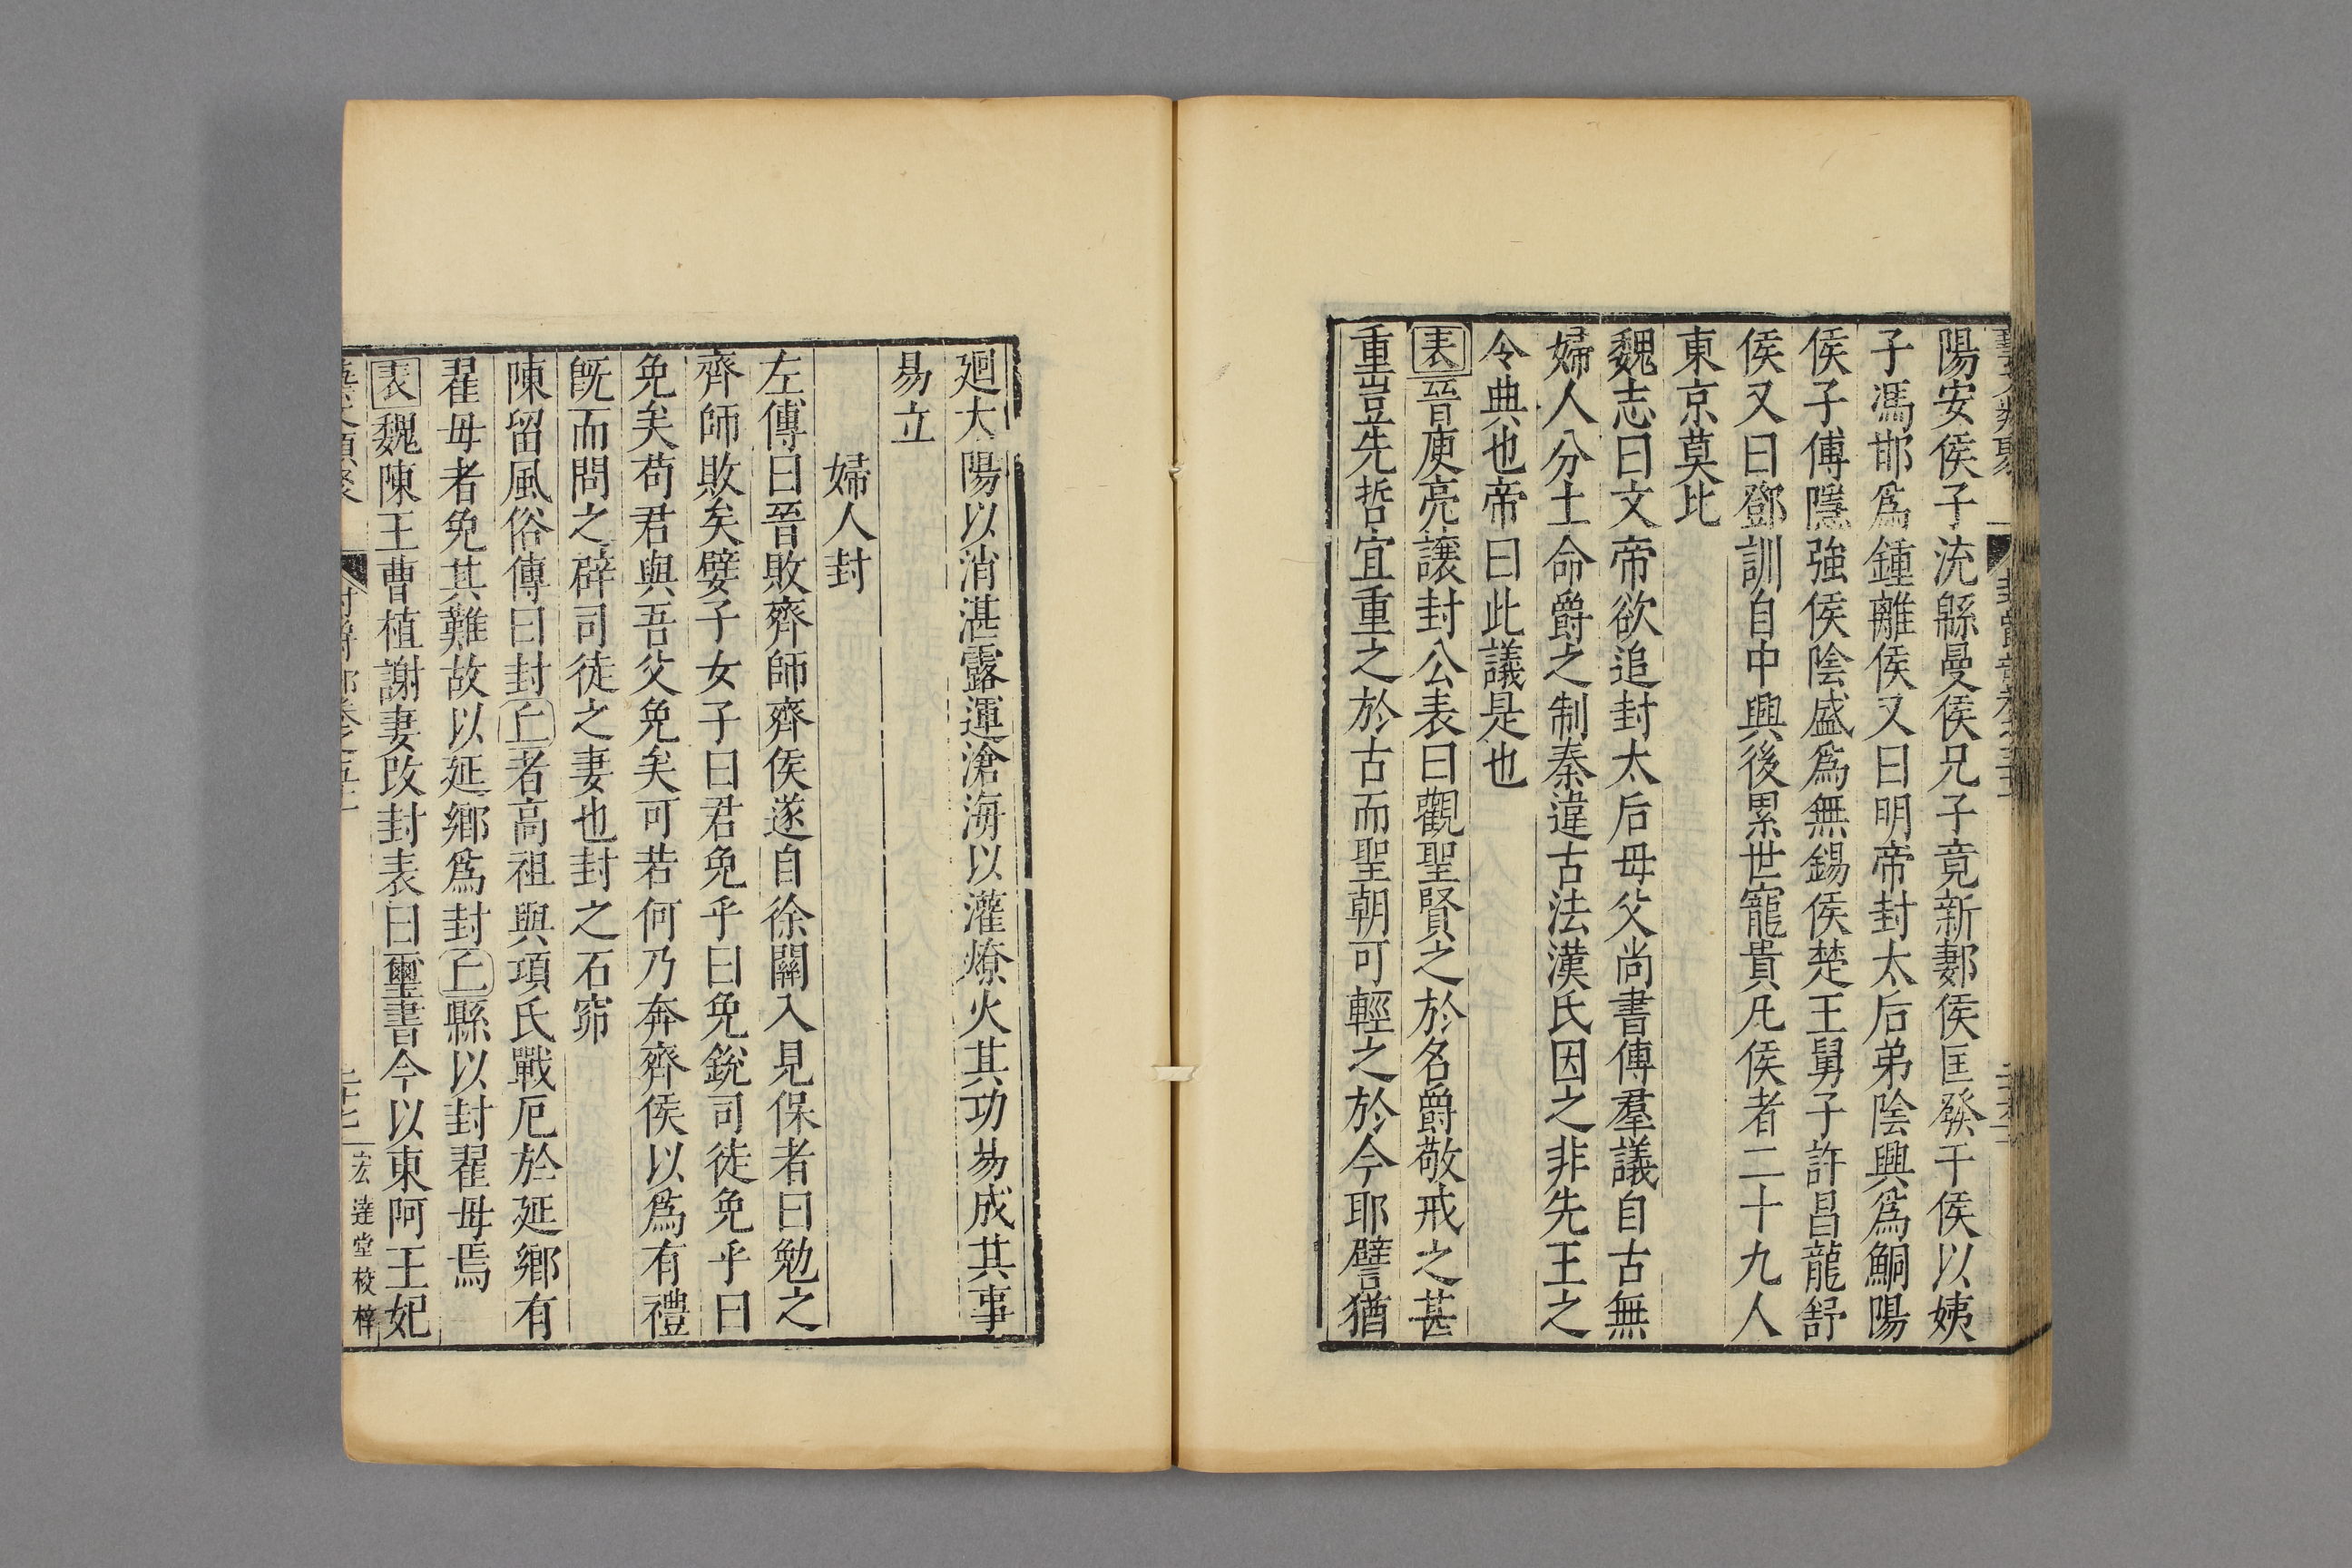 陽安侯子流緜曼侯兄子竟新郪侯匡發干侯以姨
子馮邯爲鍾離侯又曰明帝封太后弟陰興爲鮦陽
侯子傅隱強侯陰盛爲無錫侯楚王舅子許昌龍舒
侯又曰鄧訓自中興後累世寵貴凡侯者二十九人
東京莫比
魏志曰文帝欲追封太后毋父尚書傳羣議自古無
婦人分土命爵之制秦違古法漢氏因之非先王之
令典也帝曰此議是也
表晉庾亮讓封公表曰觀聖賢之於名爵敬戒之甚
重豈先哲宜重之於古而聖朝可輕之於今耶譬猶
廻大陽以消湛露運滄海以灌燎火其功易成其事
易立
婦人封
左傳曰晉敗齊師齊侯遂自徐關入見保者曰勉之
齊師敗矣嬖子女子曰君免乎曰免銳司徒免乎曰
免矣苟君與吾父免矣可若何乃奔齊侯以爲有禮
旣而問之辟司徒之妻也封之石窌
陳留風俗傳曰封丘者高祖與項氏戰厄於延鄉有
翟毋者免其難故以延鄉爲封丘縣以封翟毋焉
表魏陳王曹植謝妻改封表曰璽書今以東阿王妃
宏達堂校梓